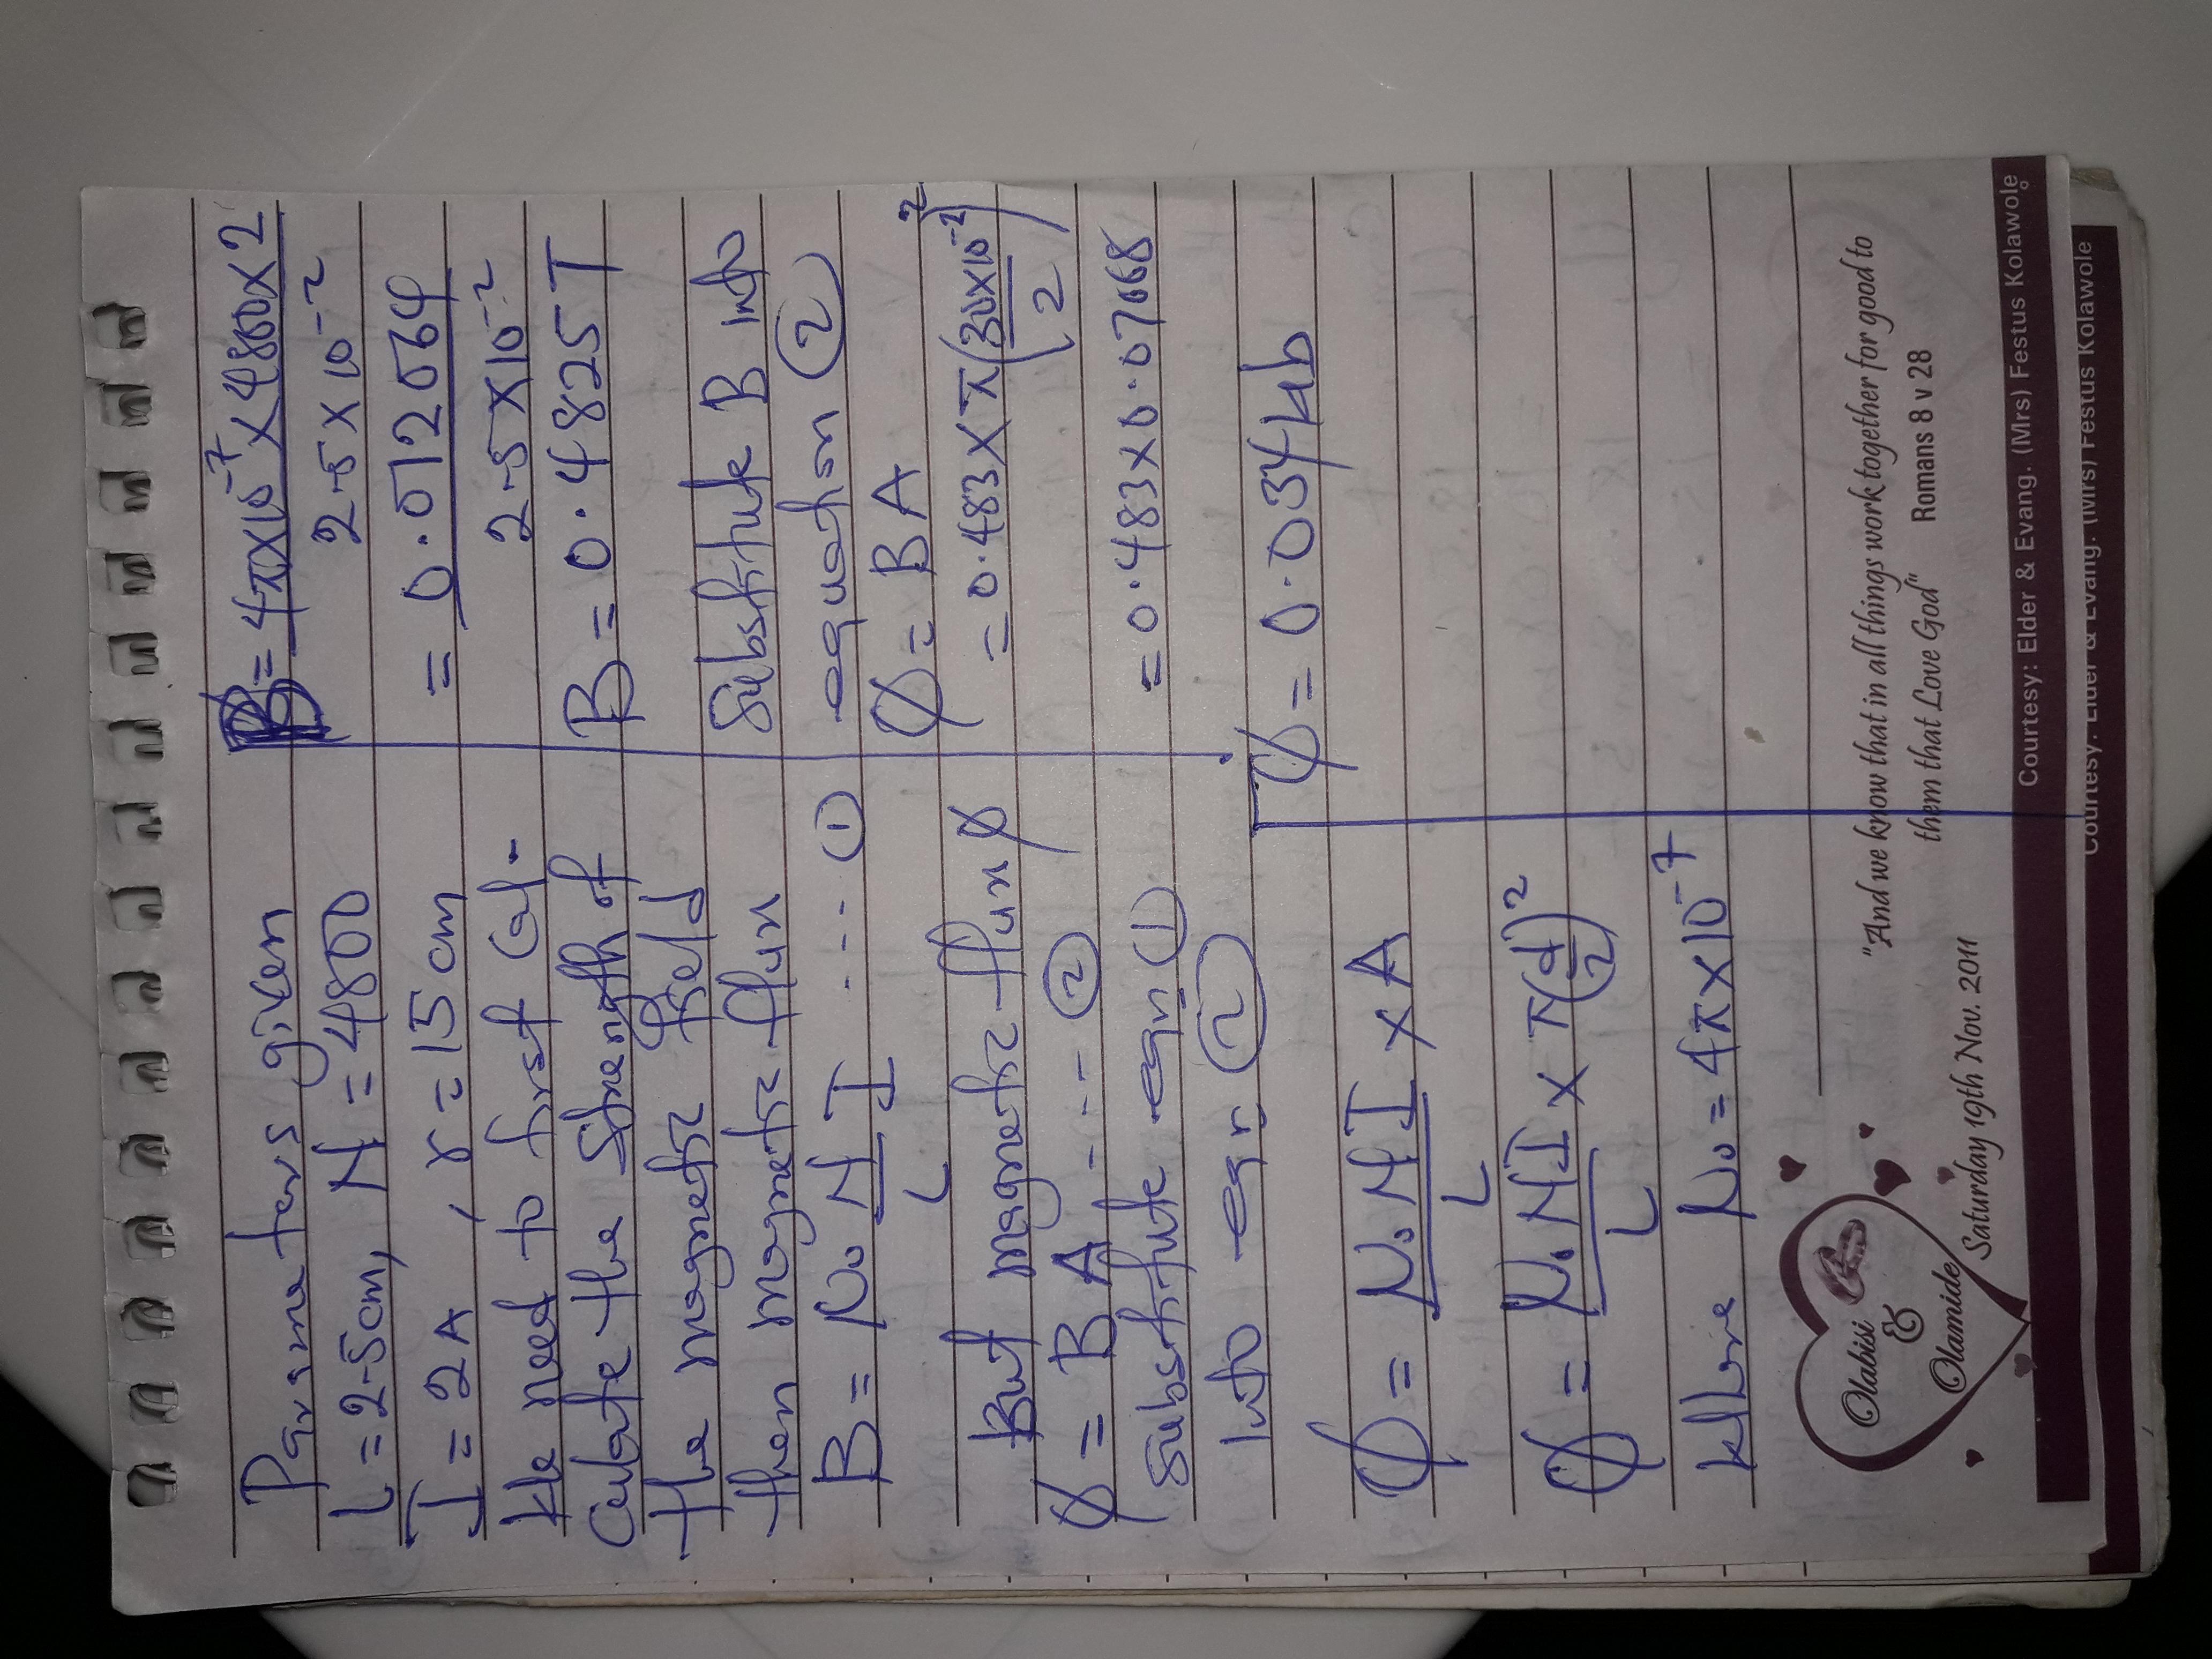 Parameters given
L = 2.5cm, N = 4800
I = 2A, r = 15cm
We need to first cal-
culate the strength of
the magnetic field
then magnetic flux
B = μ₀ N I / L ... ①
But magnetic flux Ø
Ø = B A ... ②
Substitute eqn ①
into eqn ②
Ø = μ₀ N I / L × A
Ø = μ₀ N I / L × π(d/2)²
Where μ₀ = 4π×10⁻⁷
B = 4π×10⁻⁷ × 4800 × 2 / 2.5 × 10⁻²
= 0.012064 / 2.5 × 10⁻²
B = 0.4825T
Substitute B into
equation ②
Ø = BA
= 0.483 × π(30×10⁻²/2)²
= 0.483 × 0.07068
Ø = 0.034Wb
Olabisi
&
Olamide
Saturday 19th Nov. 2011
"And we know that in all things work together for good to
them that Love God"
Romans 8 v 28
Courtesy: Elder & Evang. (Mrs) Festus Kolawole
Courtesy: Elder & Evang. (Mrs) Festus Kolawole